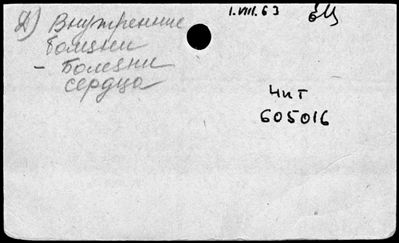 2) Внутренние
болезни
- Болезни
сердца
1.VIII.63
чит
605016